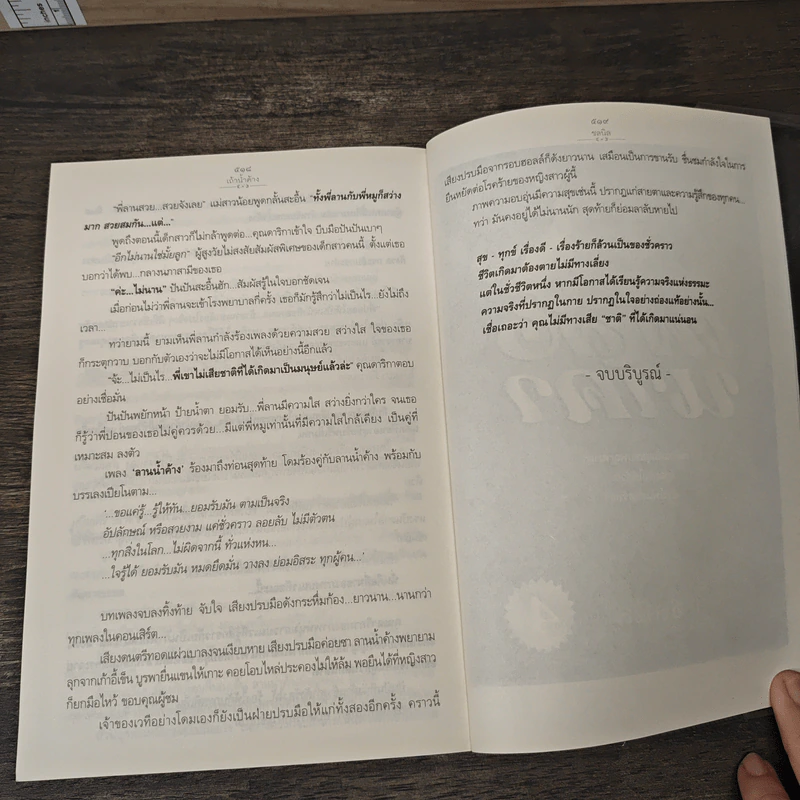 ๕๑๘
เถ้าน้ำค้าง
"พี่ลานสวย...สวยจังเลย" แม่สาวน้อยพูดกลั้นสะอื้น "ทั้งพี่ลานกับพี่หมูก็สว่าง
มาก สวยสมกัน...แต่..."
พูดถึงตอนนี้เด็กสาวก็ไม่กล้าพูดต่อ... คุณดาริกาเข้าใจ บีบมือปันปันเบาๆ
"อีกไม่นานใช่มั้ยลูก" ผู้สูงวัยไม่สงสัยสัมผัสพิเศษของเด็กสาวคนนี้ ตั้งแต่เธอ
บอกว่าได้พบ...กลางนภาสามีของเธอ
"ค่ะ...ไม่นาน" ปันปันสะอื้นฮัก...สัมผัสรู้ในใจบอกชัดเจน
เมื่อก่อนไม่ว่าพี่ลานจะเข้าโรงพยาบาลกี่ครั้ง เธอก็มักรู้สึกว่าไม่เป็นไร...ยังไม่ถึง
เวลา...
ทว่ายามนี้ ยามเห็นพี่ลานกำลังร้องเพลงด้วยความสวย สว่างใส ใจของเธอ
ก็กระตุกวาบ บอกกับตัวเองว่าจะไม่มีโอกาสได้เห็นอย่างนี้อีกแล้ว
"จ้ะ...ไม่เป็นไร...พี่เขาไม่เสียชาติที่ได้เกิดมาเป็นมนุษย์แล้วล่ะ" คุณดาริกาตอบ
อย่างเชื่อมั่น
ปันปันพยักหน้า ป้ายน้ำตา ยอมรับ...พี่ลานมีความใส สว่างยิ่งกว่าใคร จนเธอ
ก็รู้ว่าพี่ปอนของเธอไม่คู่ควรด้วย...มีแต่พี่หมูเท่านั้นที่มีความใสใกล้เคียง เป็นคู่ที่
เหมาะสม ลงตัว
เพลง 'ลานน้ำค้าง' ร้องมาถึงท่อนสุดท้าย โดมร้องคู่กับลานน้ำค้าง พร้อมกับ
บรรเลงเปียโนตาม...
'...ขอแค่รู้...รู้ให้ทัน...ยอมรับมัน ตามเป็นจริง
อัปลักษณ์ หรือสวยงาม แค่ชั่วคราว ลอยลับ ไม่มีตัวตน
...ทุกสิ่งในโลก...ไม่ผิดจากนี้ ทั่วแห่งหน...
...ใจรู้ได้ ยอมรับมัน หมดยึดมั่น วางลง ย่อมอิสระ ทุกผู้คน...'
บทเพลงจบลงทิ้งท้าย จับใจ เสียงปรบมือดังกระหึ่มก้อง...ยาวนาน...นานกว่า
ทุกเพลงในคอนเสิร์ต...
เสียงดนตรีทอดแผ่วเบาลงจนเงียบหาย เสียงปรบมือค่อยซา ลานน้ำค้างพยายาม
ลุกจากเก้าอี้เข็น บูรพายื่นแขนให้เกาะ คอยโอบไหล่ประคองไม่ให้ล้ม พอยืนได้ที่หญิงสาว
ก็ยกมือไหว้ ขอบคุณผู้ชม
เจ้าของเวทีอย่างโดมเองก็ยังเป็นฝ่ายปรบมือให้แก่ทั้งสองอีกครั้ง คราวนี้
๕๑๙
ชลนิล
เสียงปรบมือจากรอบฮอลล์ก็ดังยาวนาน เสมือนเป็นการขานรับ ชื่นชมกำลังใจในการ
ยืนหยัดต่อโรคร้ายของหญิงสาวผู้นี้
ภาพความอบอุ่นมีความสุขเช่นนี้ ปรากฏแก่สายตาและความรู้สึกของทุกคน...
ทว่า มันคงอยู่ได้ไม่นานนัก สุดท้ายก็ย่อมลาลับหายไป
สุข - ทุกข์ เรื่องดี - เรื่องร้ายก็ล้วนเป็นของชั่วคราว
ชีวิตเกิดมาต้องตายไม่มีทางเลี่ยง
แต่ในชั่วชีวิตหนึ่ง หากมีโอกาสได้เรียนรู้ความจริงแห่งธรรมะ
ความจริงที่ปรากฏในกาย ปรากฏในใจอย่างถ่องแท้อย่างนั้น...
เชื่อเถอะว่า คุณไม่มีทางเสีย "ชาติ" ที่ได้เกิดมาแน่นอน
- จบบริบูรณ์ -